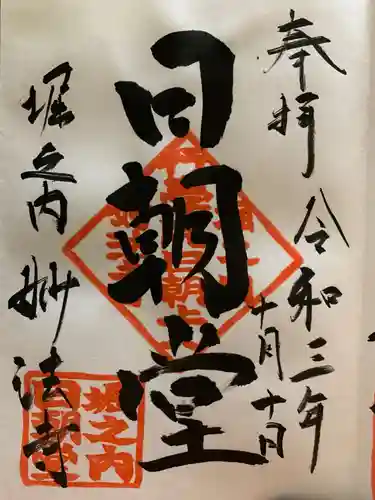 奉拝
令和三年
十月十日
日朝堂
堀之内
妙法寺
堀之内
日朝堂